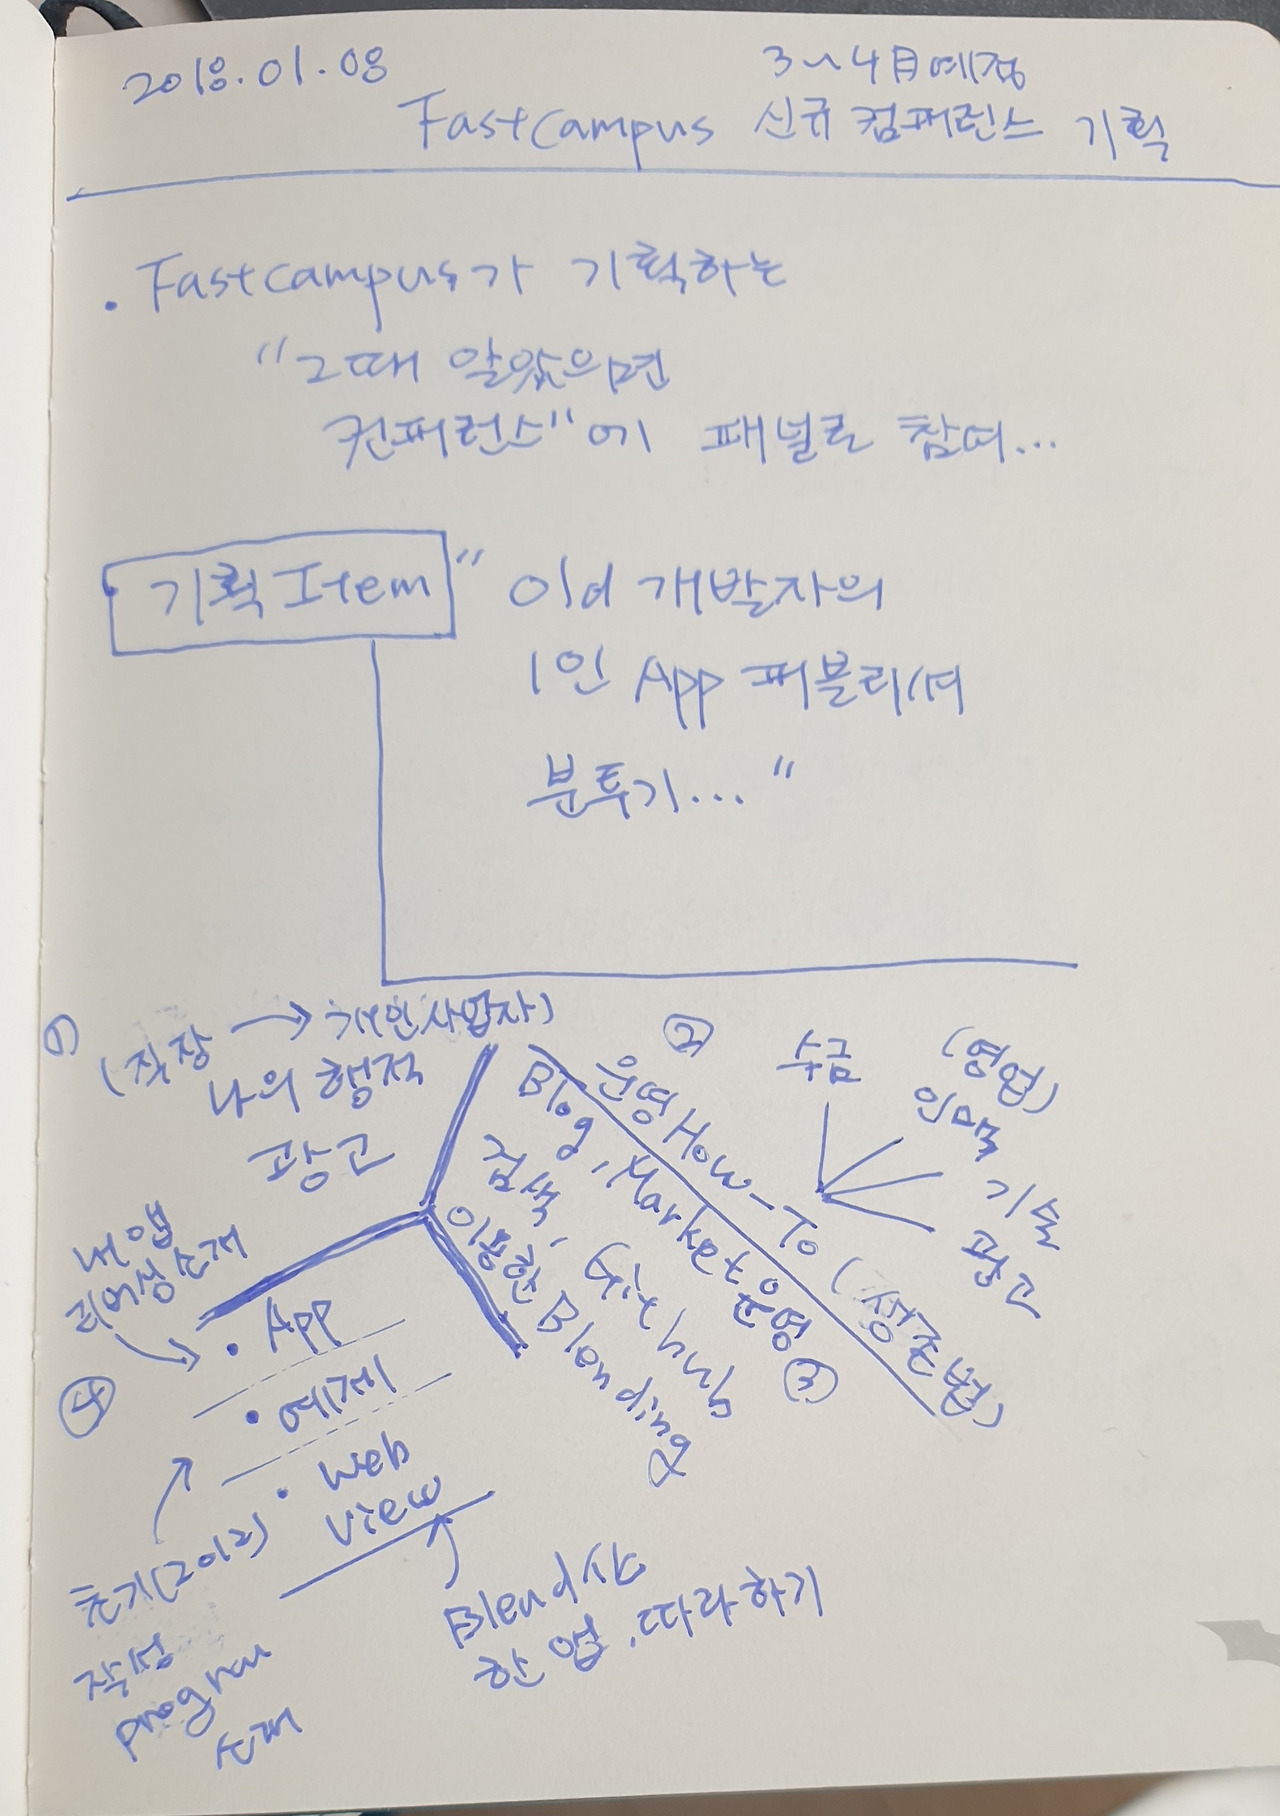 2018.01.08
3~4月예정
Fastcampus 신규 컴퍼런스 기획
· Fastcampus가 기획하는
"그때 알았으면
컨퍼런스"에 패널로 참여...
기획 Item
" 이러 개발자의
1인 App 퍼블리셔
분투기..."
①
(직장 → 개인사업자)
나의 행적
광고
②
운영 How-To (생존법)
수금
(영업)
인맥
기술
광고
Blog, Market 운영 ③
검색, Github
이용한 Blending
내 앱
소개
④
· App
· 예제
· Web
View
초기(2012)
작성
program
소개
Blend식
한 앱, 따라하기